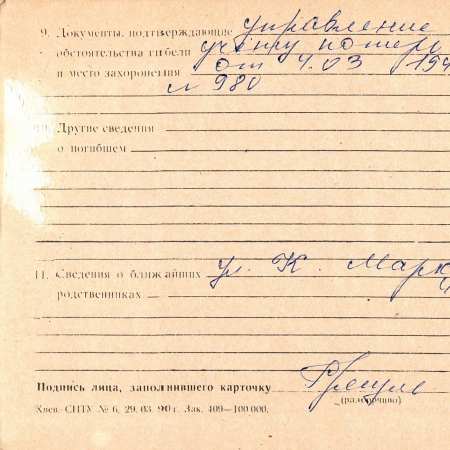 9. Документы, подтверждающие управление
обстоятельства гибели учёту потерь
и место захоронения от 4.03 194
№ 980
10. Другие сведения
о погибшем
11. Сведения о ближайших ул. К. Марк
родственниках
Подпись лица, заполнившего карточку
(разборчиво)
Киев. СПТУ № 6, 29. 03. 90 г. Зак. 409—100 000.